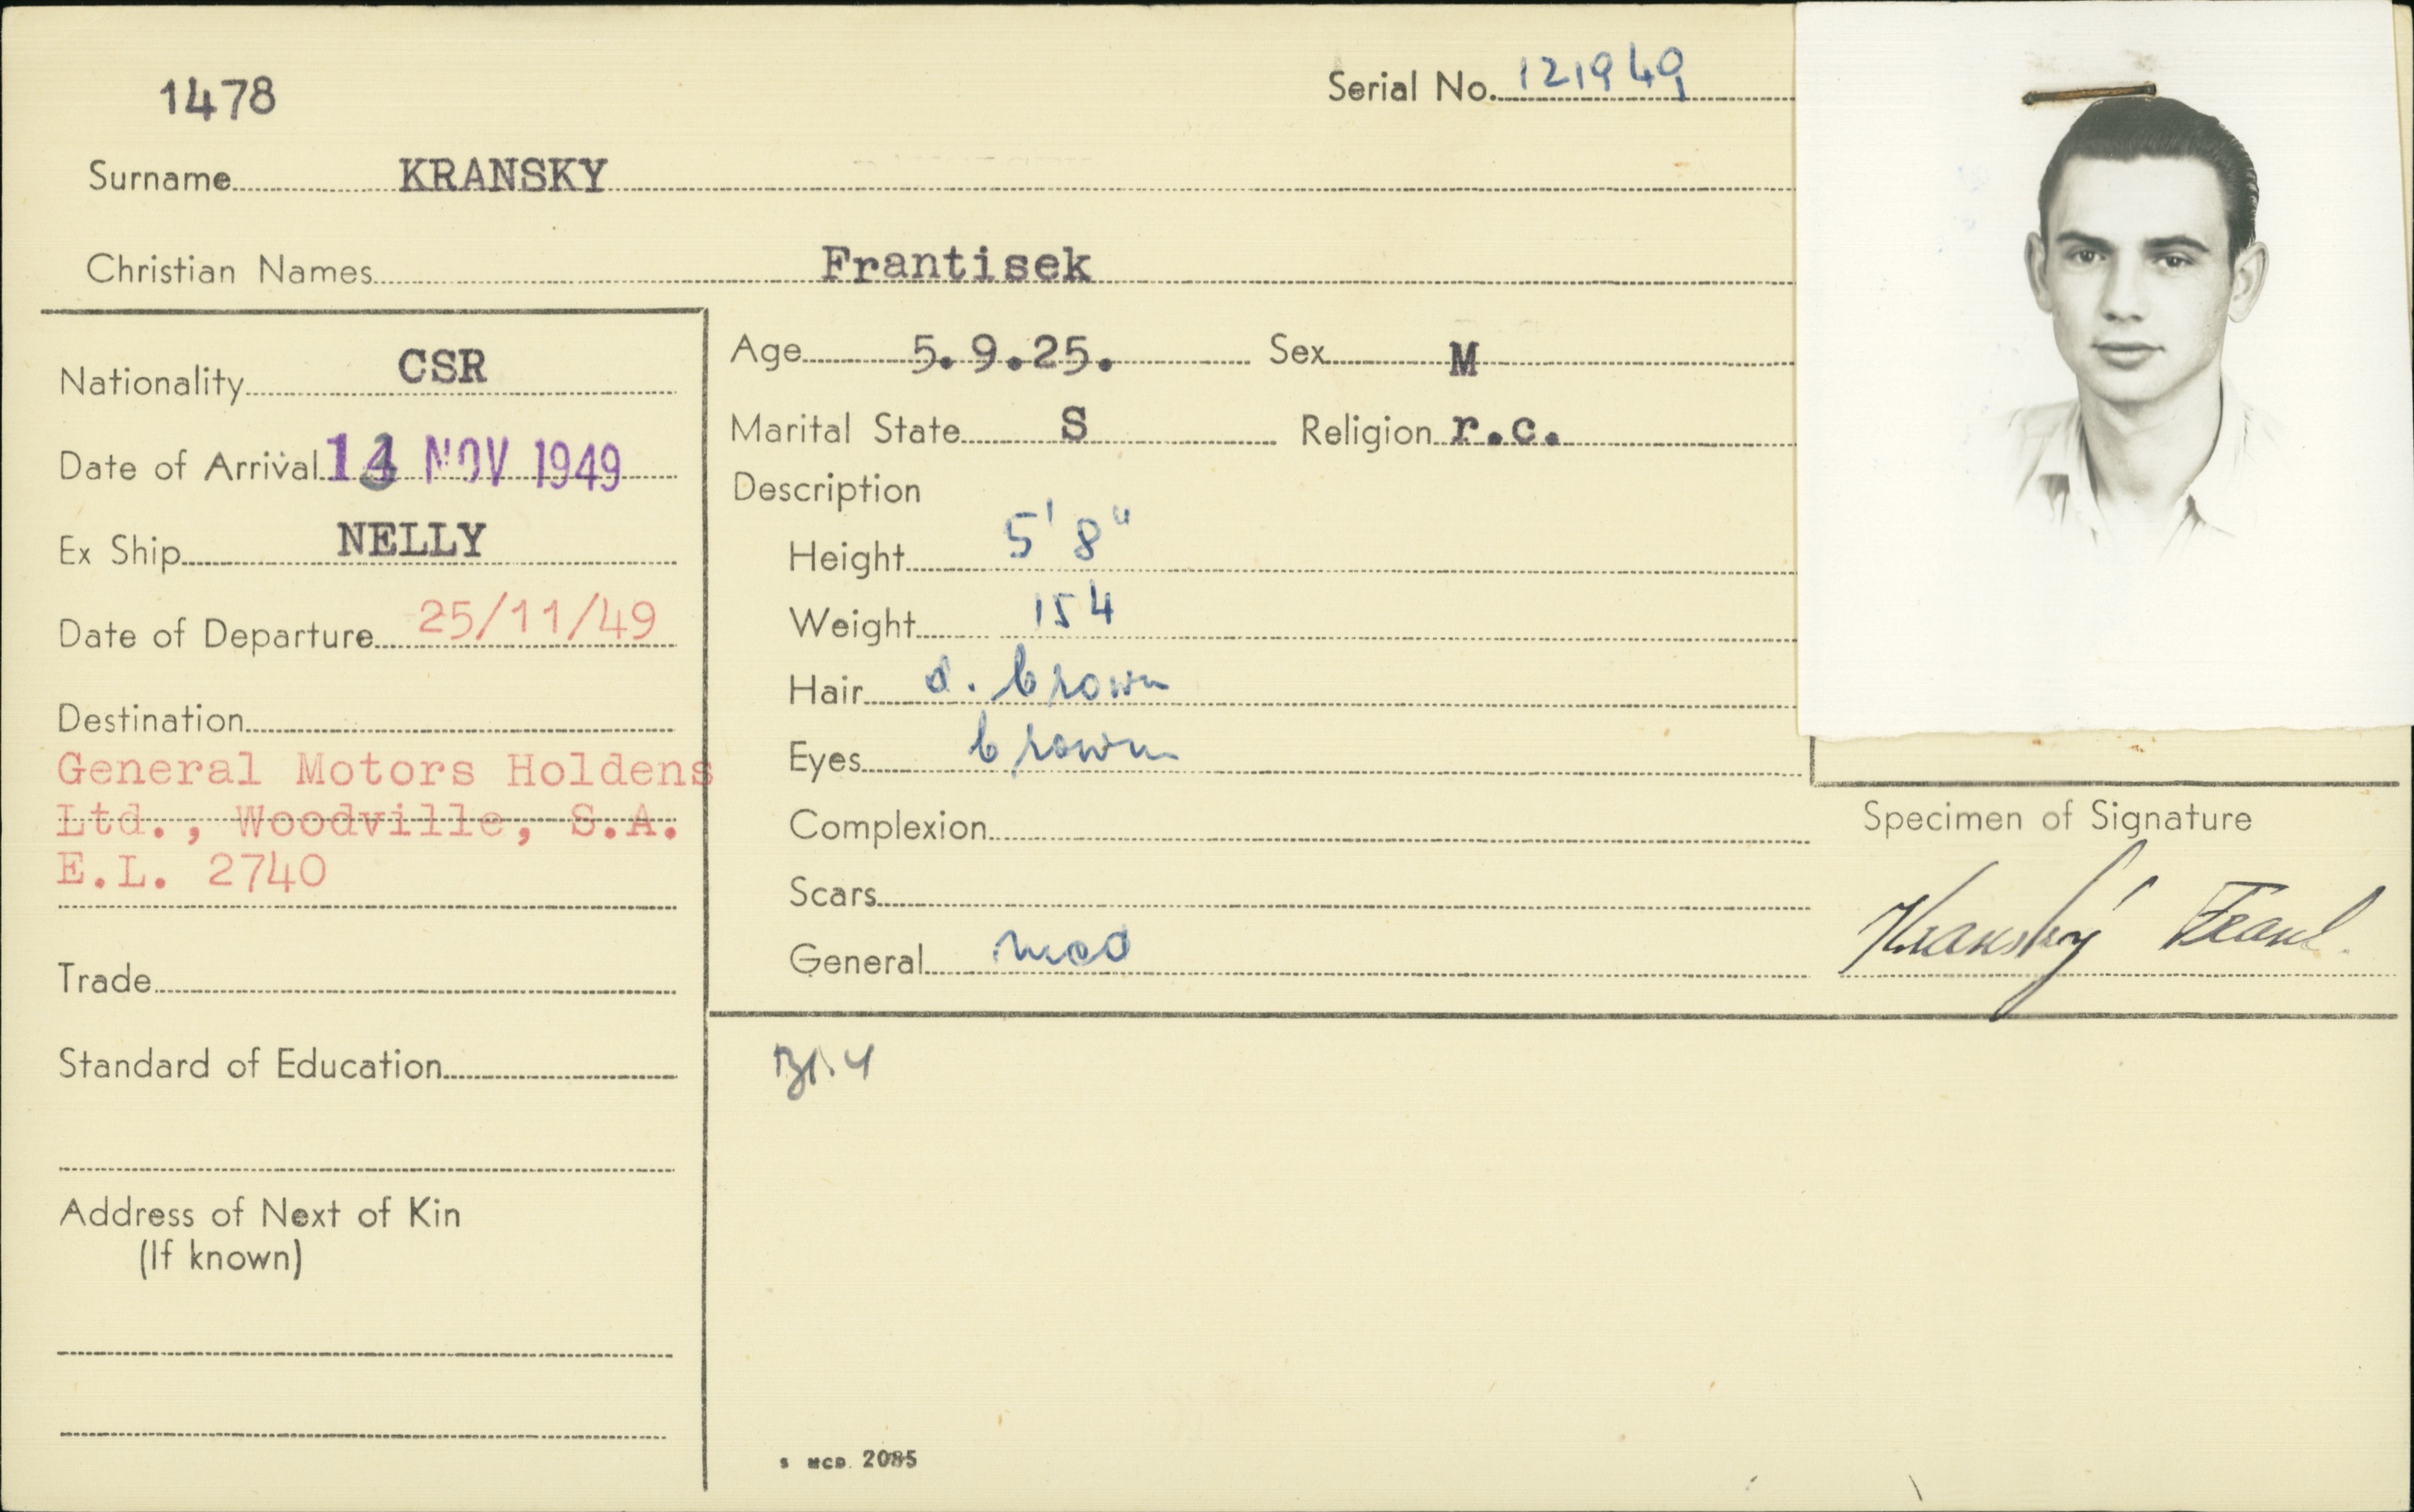 1478
Serial No. 121949
Surname KRANSKY
Christian Names Frantisek
Nationality CSR
Date of Arrival NOV 1949
Ex Ship NELLY
Date of Departure 25/11/49
Destination
General Motors Holdens
Ltd., Woodville, S.A.
E.L. 2740
Trade
Standard of Education
Address of Next of Kin
(If known)
Age 5.9.25. Sex M
Marital State S Religion r.c.
Description
Height 5'8"
Weight 154
Hair d. brown
Eyes brown
Complexion
Scars
General med
Specimen of Signature
Kranský Frant.
Bl.4
S MCD. 2085